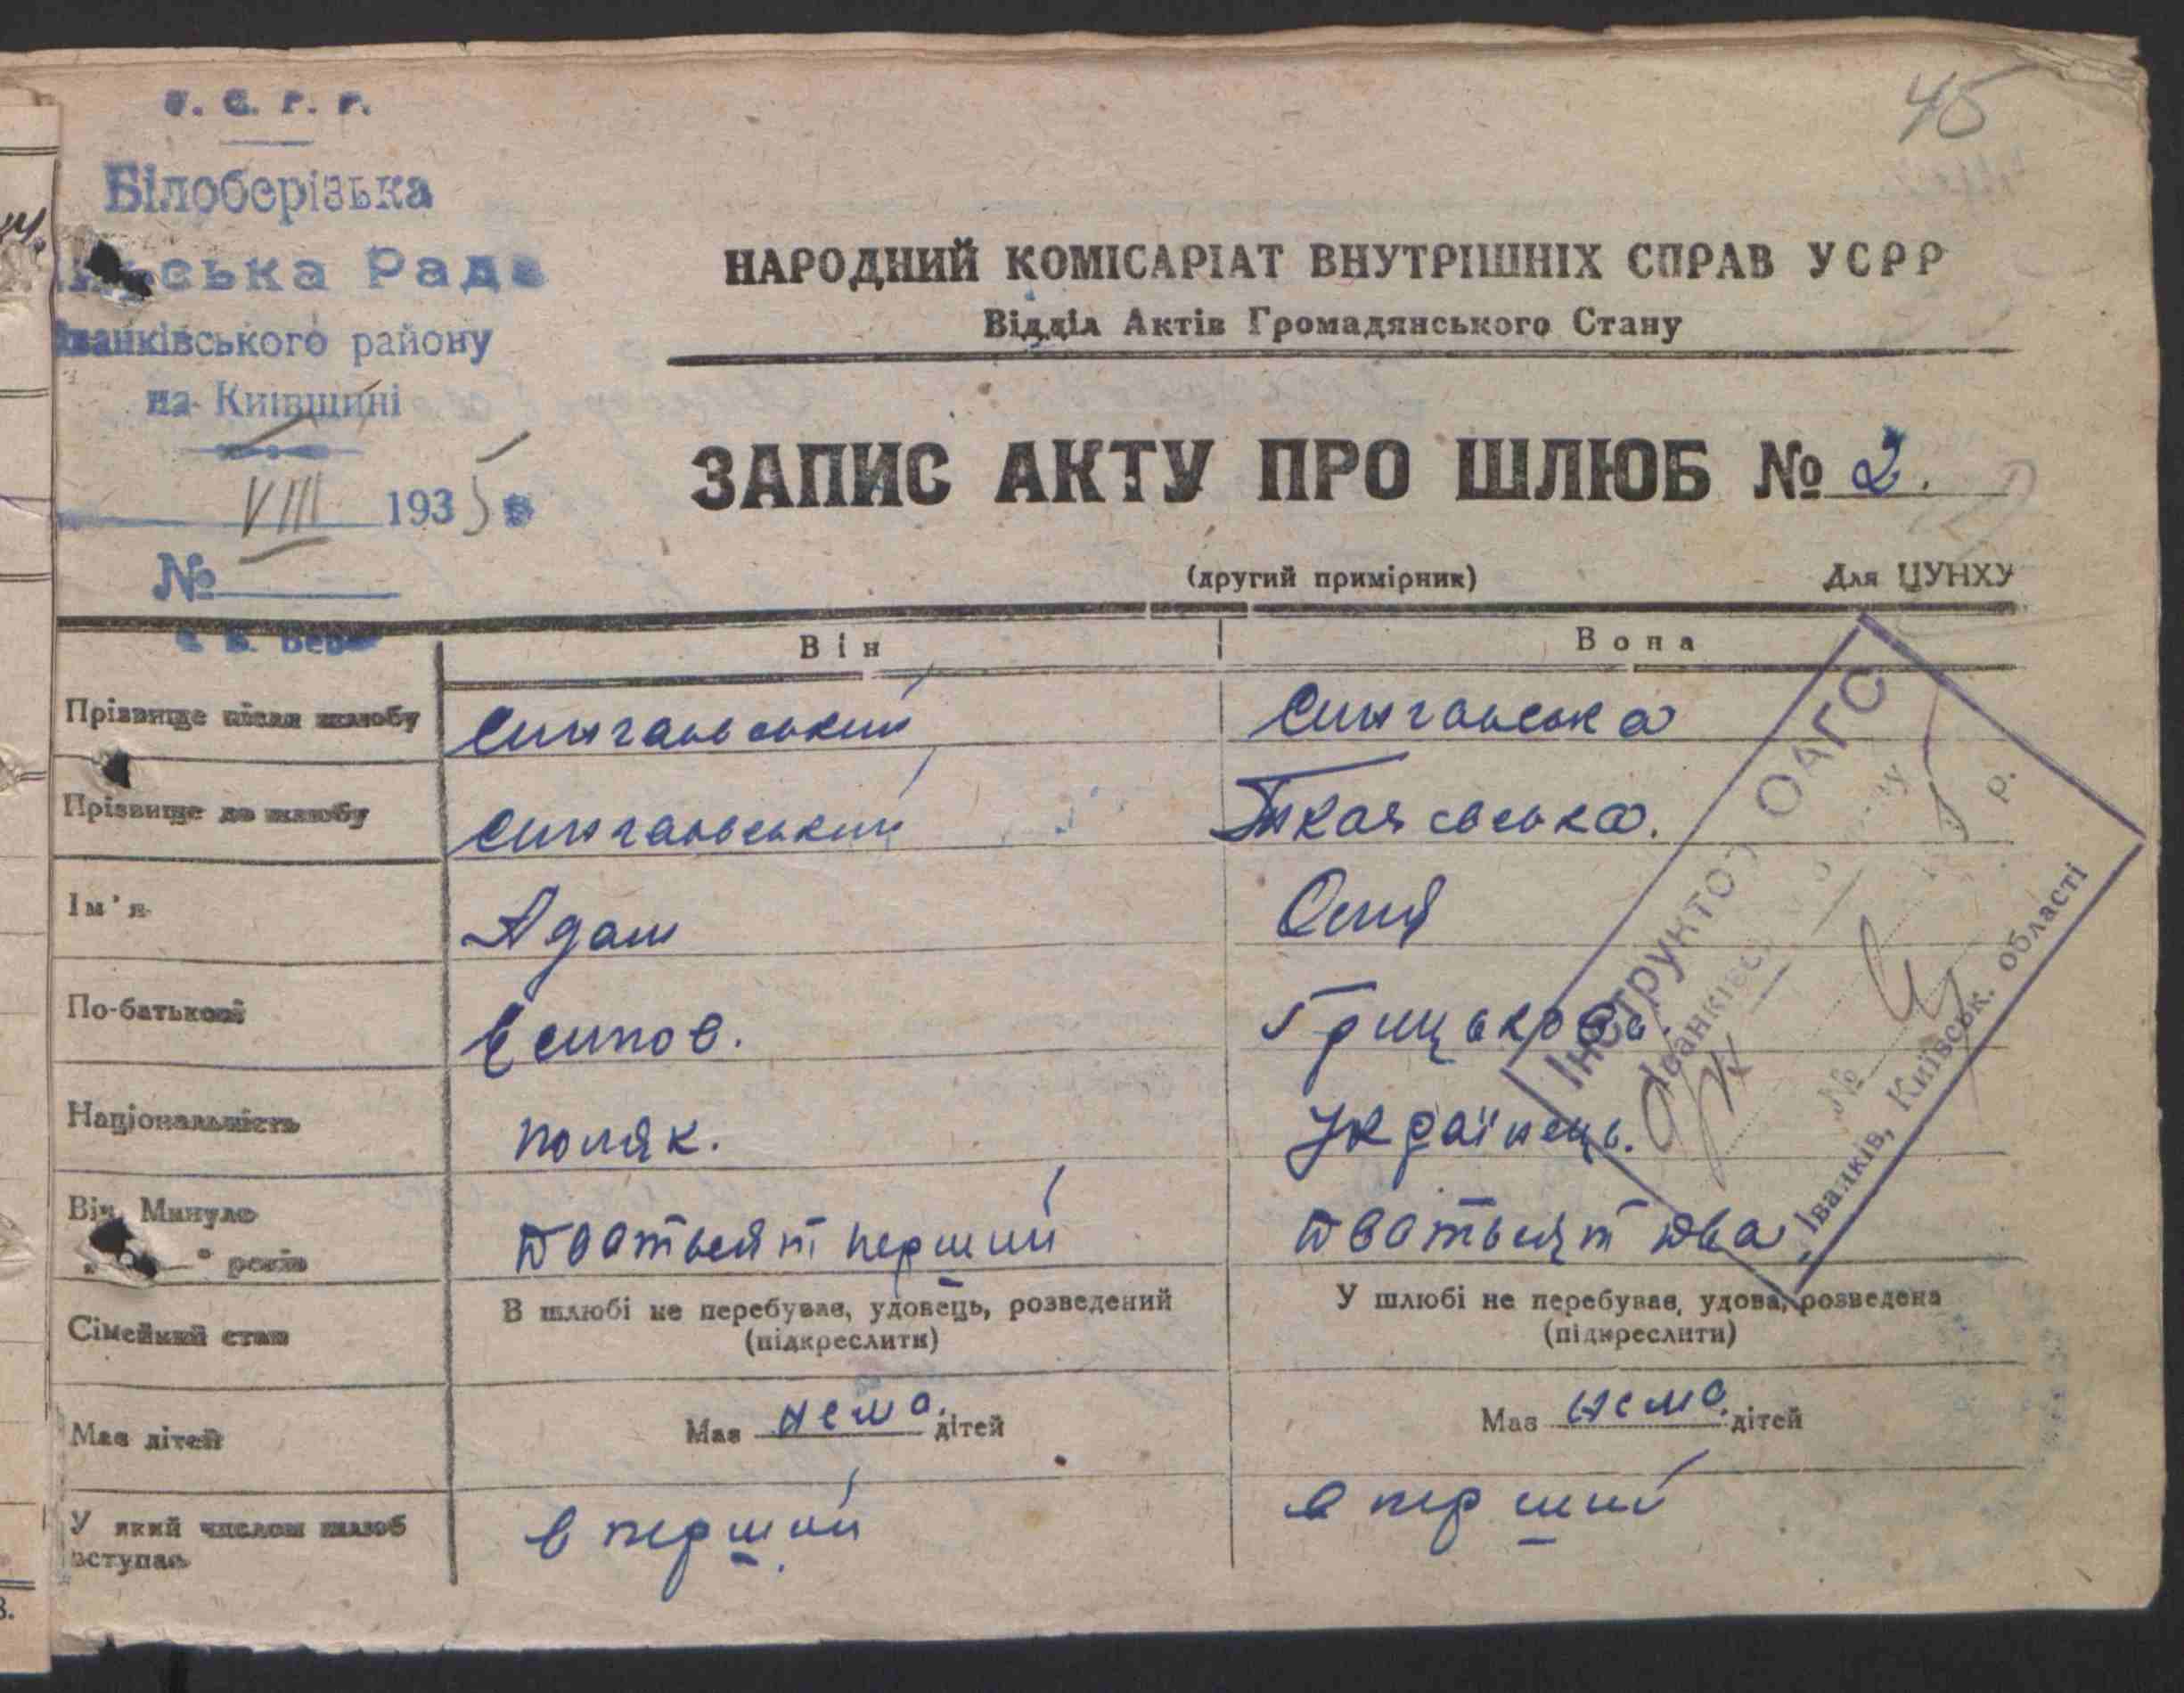 45
У. С. Р. Р.
Білоберізька
Рада
Іванківського району
на Київщині
VIII 1935 р
№
НАРОДНИЙ КОМІСАРІАТ ВНУТРІШНІХ СПРАВ УСРР
Відділ Актів Громадянського Стану
ЗАПИС АКТУ ПРО ШЛЮБ № 2.
(другий примірник) Для ЦУНХУ
Він Вона
Прізвище після шлюбу Сингаівський Сингаівська
Прізвище до шлюбу Сингаівський
Ім'я Адам Оля
По-батькові Есипов. Грицькова.
Національність поляк. Українець.
Вік. Минуло
років двоатьсят перший двоатьсят два
Сімейний стан В шлюбі не перебуває, удовець, розведений У шлюбі не перебуває, удова, розведена
(підкреслити) (підкреслити)
Має дітей Має нема. дітей Має нема. дітей
У який числом шлюб
вступає в перший в перший
Інструктор ОАГС
Іванківськ
р.
№
м. Іванків, Київськ. області